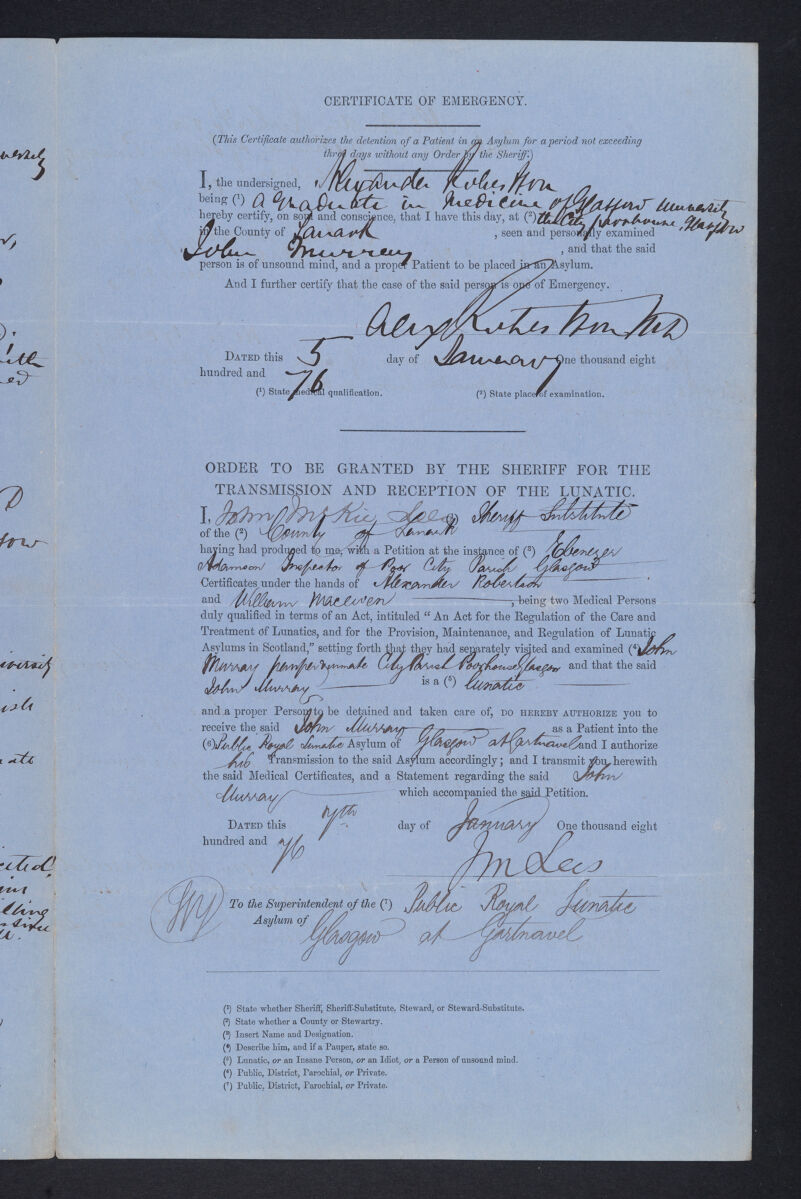 CERTIFICATE OF EMERGENCY.
(This Certificate authorizes the detention of a Patient in an Asylum for a period not exceeding
three days without any Order by the Sheriff.)
I, the undersigned, Alexander Robertson
being (¹) a Graduate in Medicine of Glasgow University
hereby certify, on soul and conscience, that I have this day, at (²) the City poorhouse, Glasgow
in the County of Lanark , seen and personally examined
John Murray , and that the said
person is of unsound mind, and a proper Patient to be placed in an Asylum.
And I further certify that the case of the said person is one of Emergency.
Alex Robertson MD
DATED this 5 day of January One thousand eight
hundred and 76
(¹) State medical qualification. (²) State place of examination.
ORDER TO BE GRANTED BY THE SHERIFF FOR THE
TRANSMISSION AND RECEPTION OF THE LUNATIC.
I, John McKie Lees (¹) Sheriff Substitute
of the (²) County of Lanark
having had produced to me, with a Petition at the instance of (³) Ebenezer
Adamson Inspector of Poor City Parish Glasgow
Certificates under the hands of Alexander Robertson
and William Macewen , being two Medical Persons
duly qualified in terms of an Act, intituled “ An Act for the Regulation of the Care and
Treatment of Lunatics, and for the Provision, Maintenance, and Regulation of Lunatic
Asylums in Scotland,” setting forth that they had separately visited and examined (⁴) John
Murray pauper inmate City Parish Poorhouse Glasgow and that the said
John Murray is a (⁵) lunatic
and a proper Person to be detained and taken care of, DO HEREBY AUTHORIZE you to
receive the said John Murray as a Patient into the
(⁶) Public Royal Lunatic Asylum of Glasgow at Gartnavel and I authorize
his Transmission to the said Asylum accordingly; and I transmit you herewith
the said Medical Certificates, and a Statement regarding the said John
Murray which accompanied the said Petition.
DATED this 7th day of January One thousand eight
hundred and 76
J M Lees
To the Superintendent of the (⁷) Public Royal Lunatic
Asylum of Glasgow at Gartnavel
(¹) State whether Sheriff, Sheriff-Substitute, Steward, or Steward-Substitute.
(²) State whether a County or Stewartry.
(³) Insert Name and Designation.
(⁴) Describe him, and if a Pauper, state so.
(⁵) Lunatic, or an Insane Person, or an Idiot, or a Person of unsound mind.
(⁶) Public, District, Parochial, or Private.
(⁷) Public, District, Parochial, or Private.